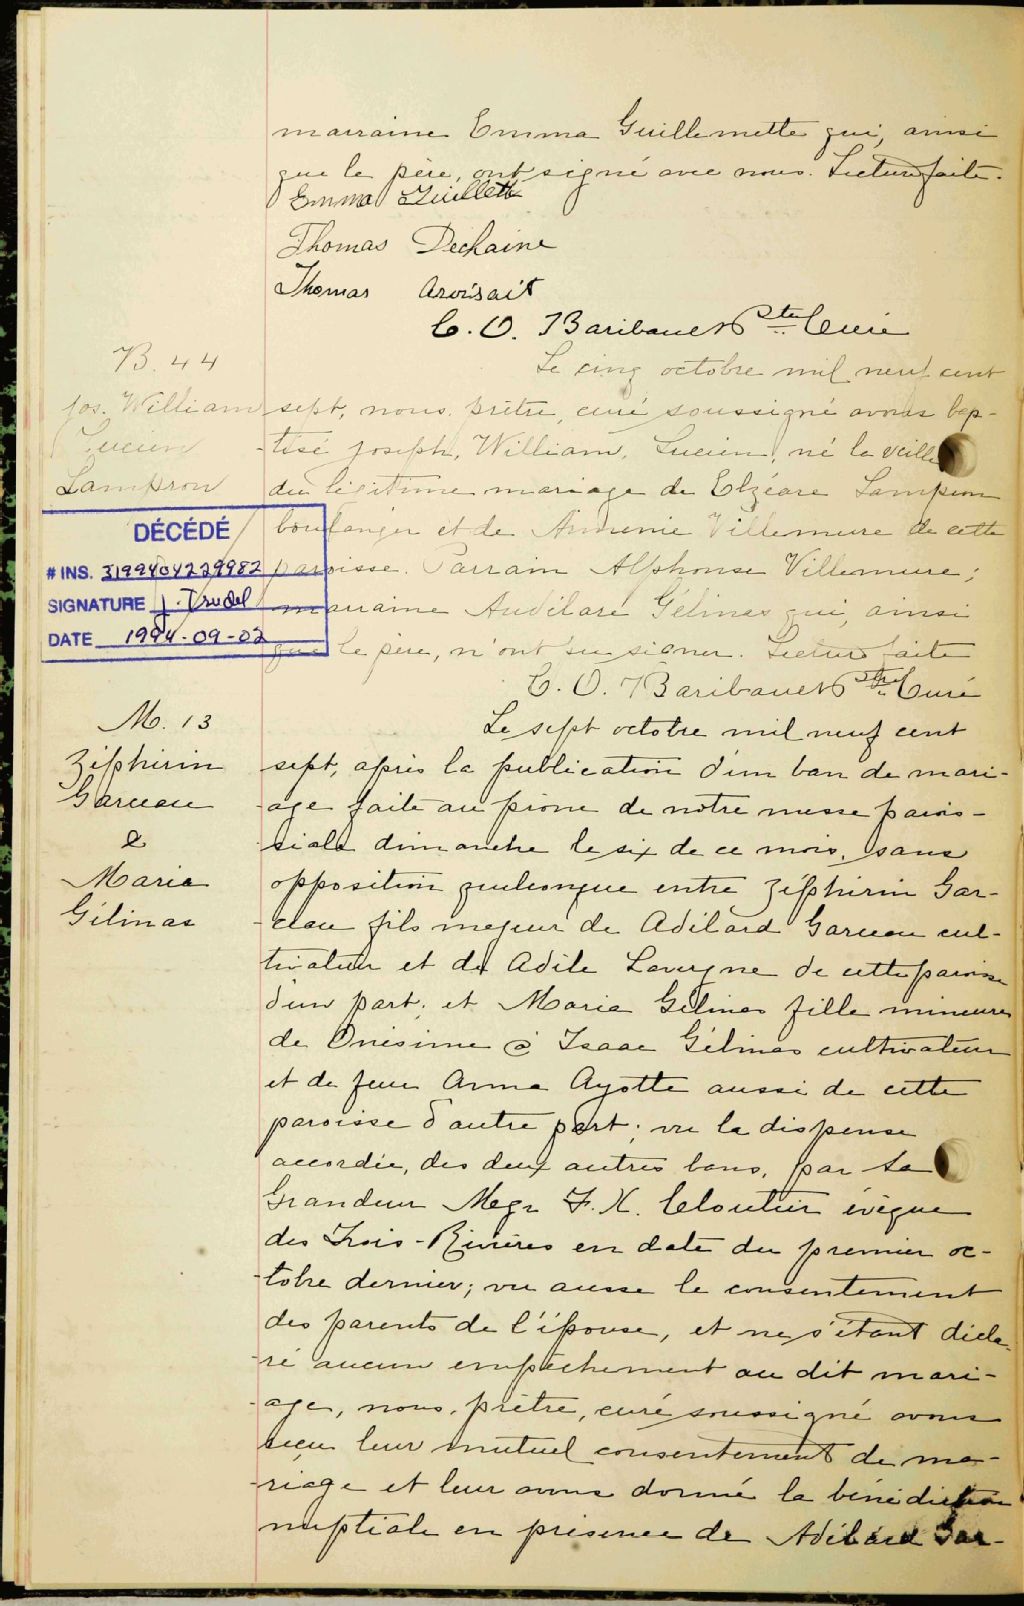 marraine Emma Guillemette qui, ainsi
que le père, ont signé avec nous. Lecture faite.
Emma Guillett
Thomas Dechaine
Thomas
C. O. Baribeault Ptre Curé
B. 44
Jos. William
Lucien
Lampron
Le cinq octobre mil neuf cent
sept, nous, prêtre, curé soussigné avons bap-
-tisé Joseph, William, Lucien, né la veille
du légitime mariage de Elzéare Lampron
boulanger et de Armenie Villemure de cette
paroisse. Parrain Alphonse Villemure;
marraine Audilare Gélinas qui, ainsi
que le père, n'ont su signer. Lecture faite
C. O. Baribeault Ptre Curé
DÉCÉDÉ
# INS. 3199404229982
SIGNATURE J. Trudel
DATE 1994-09-02
M. 13
Zéphirin
Garceau
&
Maria
Gélinas
Le sept octobre mil neuf cent
sept, après la publication d'un ban de mari-
-age faite au prone de notre messe parois-
-siale dimanche le six de ce mois, sans
opposition quelconque entre Zéphirin Gar-
-ceau fils majeur de Adélard Garceau cul-
tivateur et de Adile Lavergne de cette paroisse
d'un part; et Maria Gélinas fille mineure
de Onésime @ Isaac Gélinas cultivateur
et de feue Anna Ayotte aussi de cette
paroisse d'autre part; vu la dispense
accordée, des deux autres bans, par Sa
Grandeur Megr F. X. Cloutier évêque
des Trois-Rivières en date du premier oc-
-tobre dernier; vu ausse le consentement
des parents de l'épouse, et ne s'étant décla-
-ré aucun empêchement au dit mari-
-age, nous, prêtre, curé soussigné avons
reçu leur mutuel consentement de ma-
-riage et leur avons donné la bénédiction
nuptiale en présence de Adélard Gar-